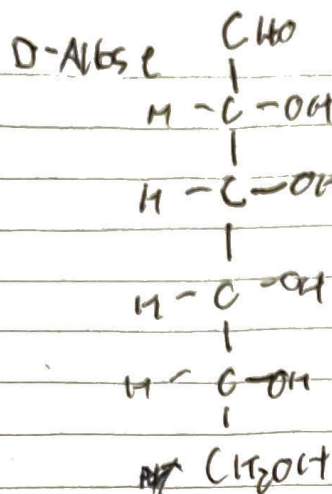 D-Allose CHO
H-C-OH
H-C-OH
H-C-OH
H-C-OH
CH2OH